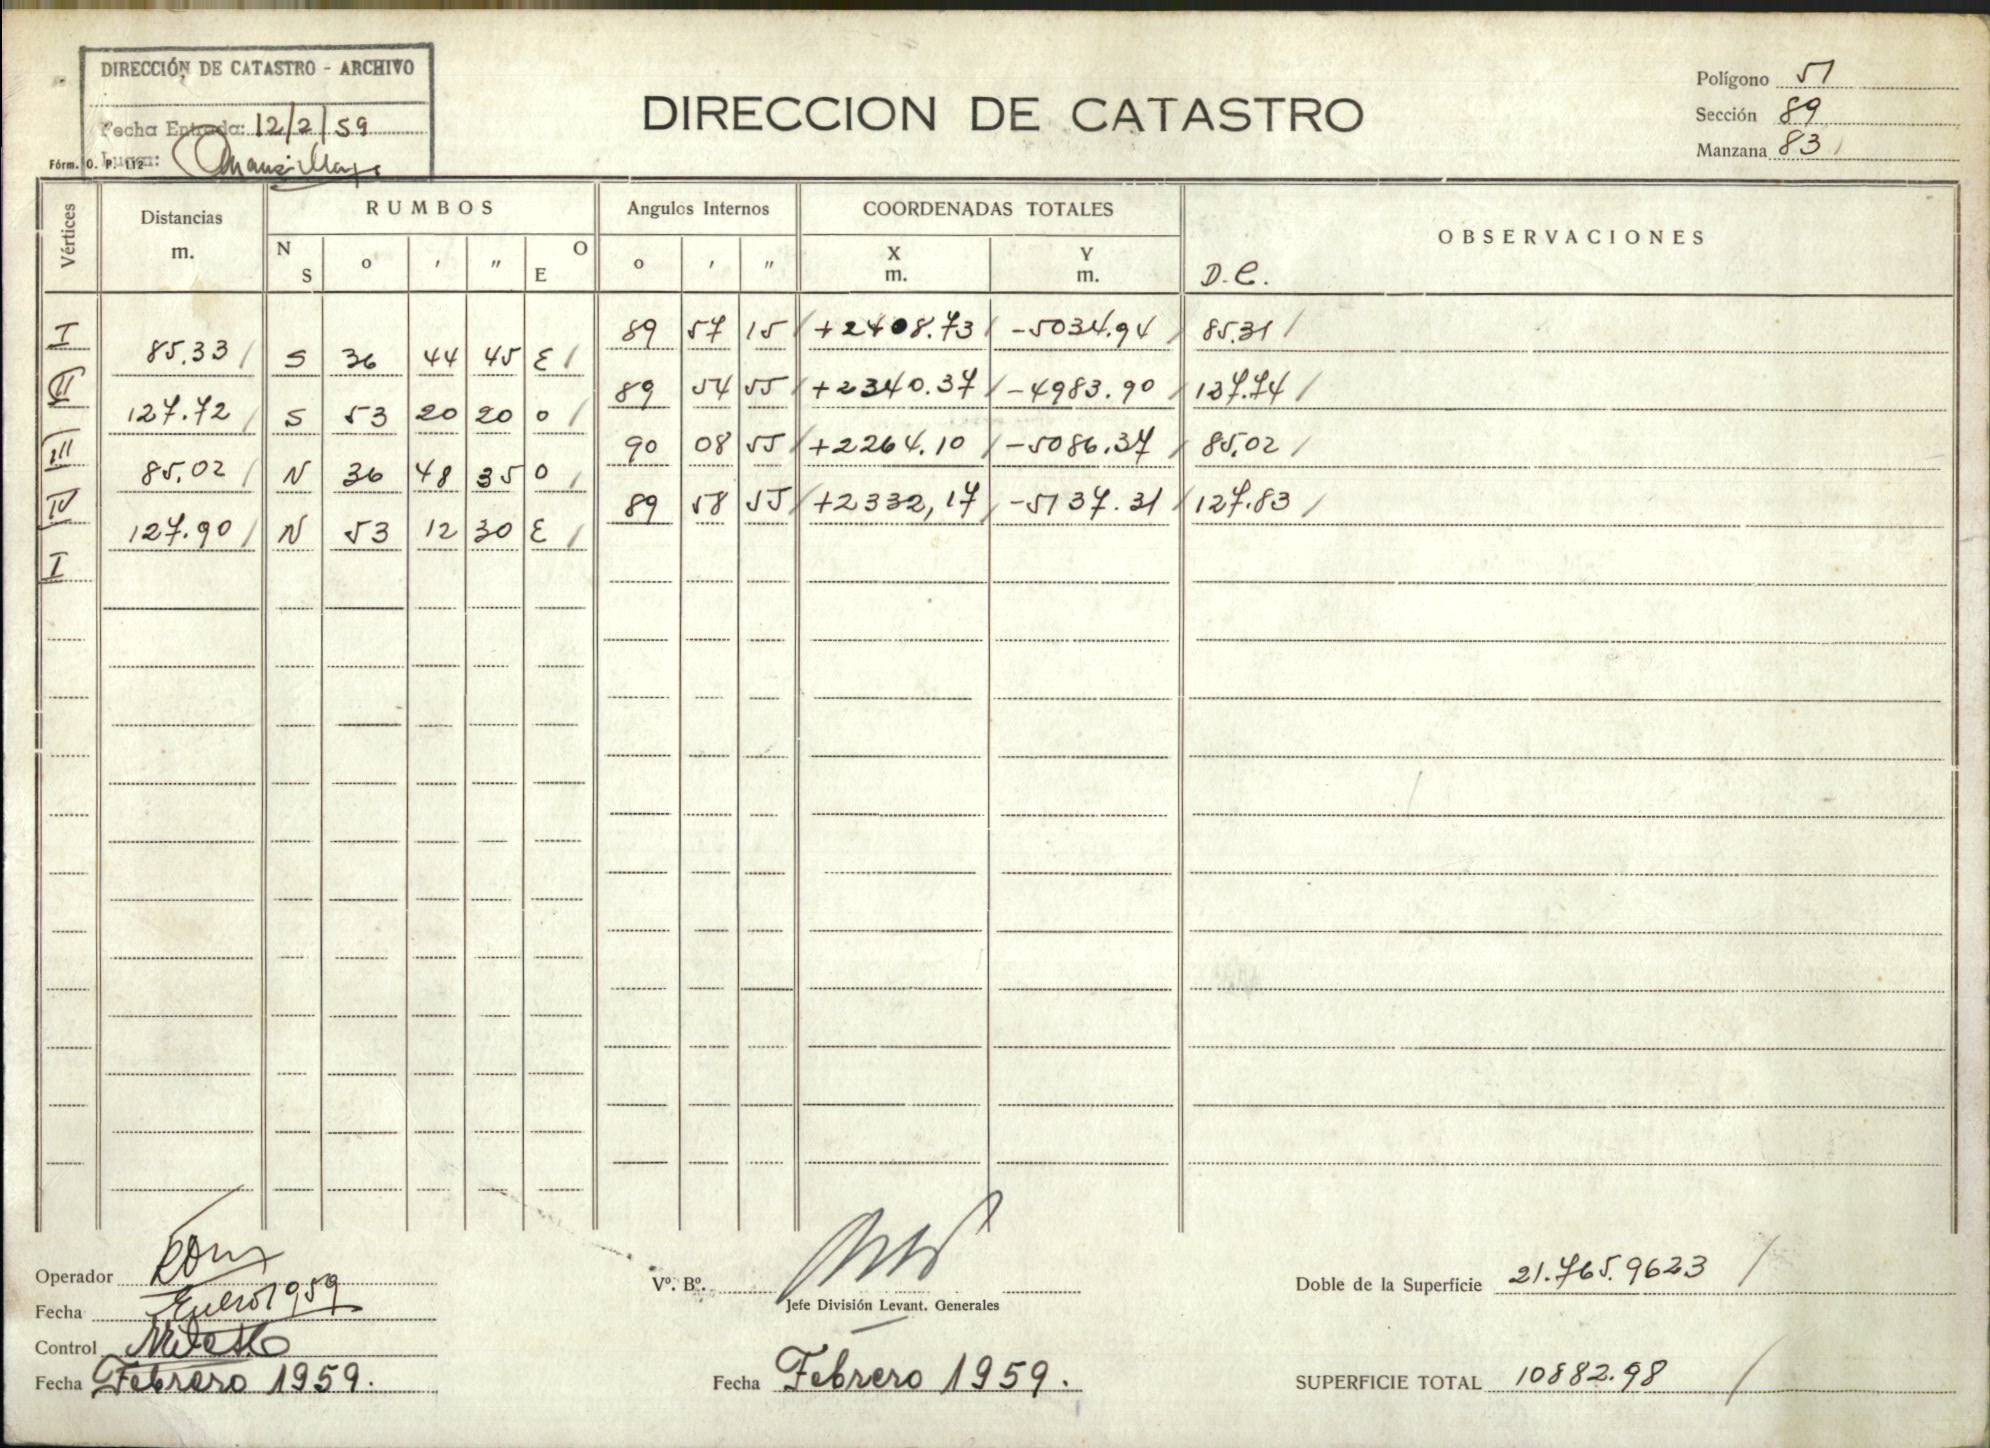 DIRECCIÓN DE CATASTRO - ARCHIVO
Fecha Entrada: 12/2/59
Lugar:
Fórm. O. P. 112
DIRECCION DE CATASTRO
Polígono 51
Sección 89
Manzana 83
Vértices
Distancias m.
RUMBOS
N S
o
'
"
O E
Angulos Internos
o ' "
COORDENADAS TOTALES
X m.
Y m.
OBSERVACIONES
D.C.
I 89 57 15 +2408.73 -5034.94 85.31
85.33 S 36 44 45 E
II 89 54 55 +2340.37 -4983.90 127.74
127.72 S 53 20 20 O
III 90 08 55 +2264.10 -5086.37 85.02
85.02 N 36 48 35 O
IV 89 58 55 +2332,17 -5137.31 127.83
127.90 N 53 12 30 E
I
Operador
Fecha Enero 1959
Control
Fecha Febrero 1959.
Vº. Bº.
Jefe División Levant. Generales
Fecha Febrero 1959.
Doble de la Superficie 21.765.9623
SUPERFICIE TOTAL 10882.98